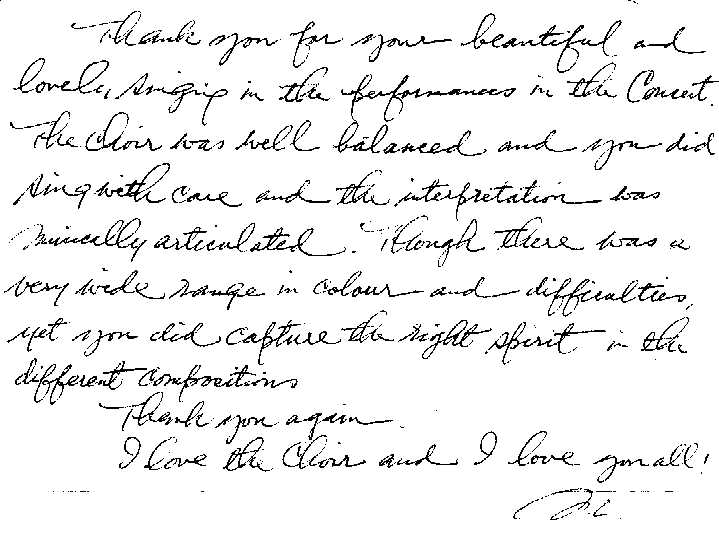 Thank you for your beautiful and
lovely singing in the performances in the Concert.
The Choir was well balanced and you did
sing with care and the interpretation was
musically articulated. Though there was a
very wide range in colour and difficulties,
yet you did capture the right spirit in the
different compositions
Thank you again.
I love the Choir and I love you all!